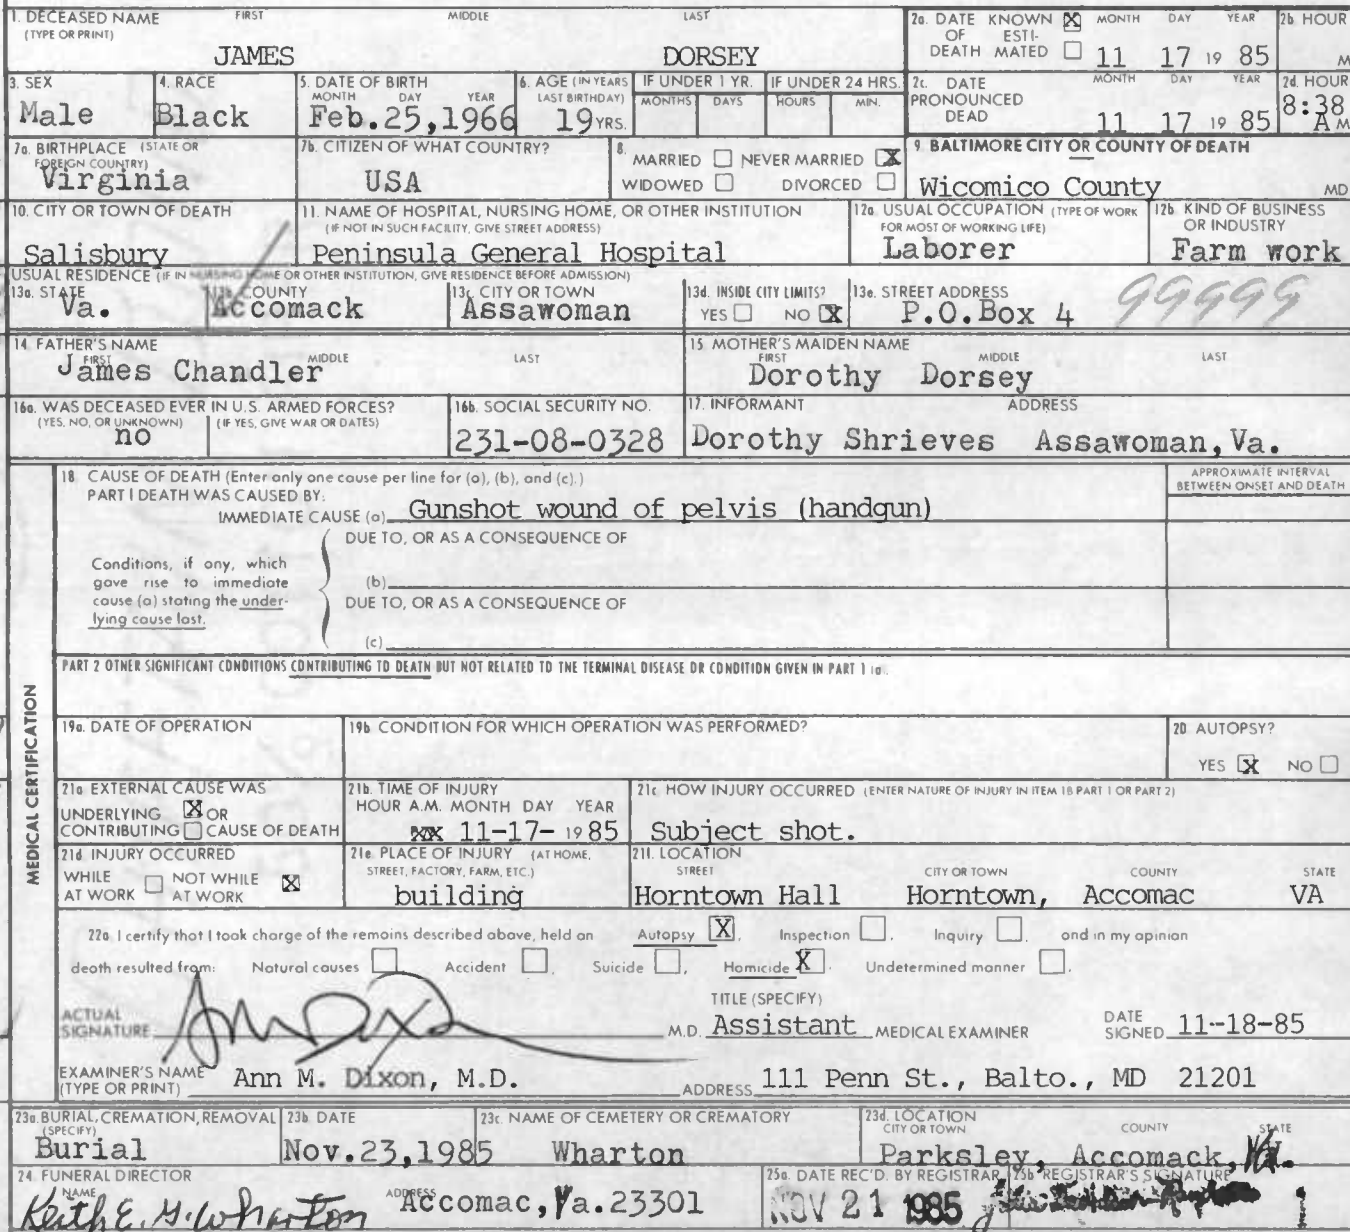 1. DECEASED NAME FIRST MIDDLE LAST
(TYPE OR PRINT)
JAMES DORSEY
2a. DATE KNOWN X MONTH DAY YEAR
OF ESTI-
DEATH MATED 11 17 19 85
2b. HOUR
M
3. SEX
Male
4. RACE
Black
5. DATE OF BIRTH
MONTH DAY YEAR
Feb.25,1966
6. AGE (IN YEARS
LAST BIRTHDAY)
19 YRS.
IF UNDER 1 YR.
MONTHS DAYS
IF UNDER 24 HRS.
HOURS MIN.
2c. DATE MONTH DAY YEAR
PRONOUNCED
DEAD 11 17 19 85
2d. HOUR
8:38
A M
7a. BIRTHPLACE (STATE OR
FOREIGN COUNTRY)
Virginia
7b. CITIZEN OF WHAT COUNTRY?
USA
8.
MARRIED NEVER MARRIED X
WIDOWED DIVORCED
9. BALTIMORE CITY OR COUNTY OF DEATH
Wicomico County MD
10. CITY OR TOWN OF DEATH
Salisbury
11. NAME OF HOSPITAL, NURSING HOME, OR OTHER INSTITUTION
(IF NOT IN SUCH FACILITY, GIVE STREET ADDRESS)
Peninsula General Hospital
12a. USUAL OCCUPATION (TYPE OF WORK
FOR MOST OF WORKING LIFE)
Laborer
12b. KIND OF BUSINESS
OR INDUSTRY
Farm work
USUAL RESIDENCE (IF IN NURSING HOME OR OTHER INSTITUTION, GIVE RESIDENCE BEFORE ADMISSION)
13a. STATE
Va.
13b. COUNTY
Accomack
13c. CITY OR TOWN
Assawoman
13d. INSIDE CITY LIMITS?
YES NO X
13e. STREET ADDRESS
P.O.Box 4
99999
14. FATHER'S NAME
FIRST MIDDLE LAST
James Chandler
15. MOTHER'S MAIDEN NAME
FIRST MIDDLE LAST
Dorothy Dorsey
16a. WAS DECEASED EVER IN U.S. ARMED FORCES?
(YES, NO, OR UNKNOWN) (IF YES, GIVE WAR OR DATES)
no
16b. SOCIAL SECURITY NO.
231-08-0328
17. INFORMANT ADDRESS
Dorothy Shrieves Assawoman,Va.
MEDICAL CERTIFICATION
18. CAUSE OF DEATH (Enter only one cause per line for (a), (b), and (c).)
PART I DEATH WAS CAUSED BY:
IMMEDIATE CAUSE (a) Gunshot wound of pelvis (handgun)
APPROXIMATE INTERVAL
BETWEEN ONSET AND DEATH
DUE TO, OR AS A CONSEQUENCE OF
Conditions, if any, which
gave rise to immediate
cause (a) stating the under-
lying cause last.
(b)
DUE TO, OR AS A CONSEQUENCE OF
(c)
PART 2 OTHER SIGNIFICANT CONDITIONS CONTRIBUTING TO DEATH BUT NOT RELATED TO THE TERMINAL DISEASE OR CONDITION GIVEN IN PART 1 (a).
19a. DATE OF OPERATION
19b. CONDITION FOR WHICH OPERATION WAS PERFORMED?
20. AUTOPSY?
YES X NO
21a. EXTERNAL CAUSE WAS
UNDERLYING X OR
CONTRIBUTING CAUSE OF DEATH
21b. TIME OF INJURY
HOUR A.M. MONTH DAY YEAR
11-17- 19 85
21c. HOW INJURY OCCURRED (ENTER NATURE OF INJURY IN ITEM 18 PART 1 OR PART 2)
Subject shot.
21d. INJURY OCCURRED
WHILE NOT WHILE X
AT WORK AT WORK
21e. PLACE OF INJURY (AT HOME,
STREET, FACTORY, FARM, ETC.)
building
21f. LOCATION
STREET CITY OR TOWN COUNTY STATE
Horntown Hall Horntown, Accomac VA
22a. I certify that I took charge of the remains described above, held an Autopsy X, Inspection , Inquiry , and in my opinion
death resulted from: Natural causes , Accident , Suicide , Homicide X, Undetermined manner .
ACTUAL
SIGNATURE Ann Dixon
TITLE (SPECIFY)
M.D. Assistant MEDICAL EXAMINER
DATE
SIGNED 11-18-85
EXAMINER'S NAME
(TYPE OR PRINT) Ann M. Dixon, M.D.
ADDRESS 111 Penn St., Balto., MD 21201
23a. BURIAL, CREMATION, REMOVAL
(SPECIFY)
Burial
23b. DATE
Nov.23,1985
23c. NAME OF CEMETERY OR CREMATORY
Wharton
23d. LOCATION
CITY OR TOWN COUNTY STATE
Parksley, Accomack, Va.
24. FUNERAL DIRECTOR
NAME ADDRESS
Keith E. H. Wharton Accomac, Va.23301
25a. DATE REC'D. BY REGISTRAR
NOV 21 1985
25b. REGISTRAR'S SIGNATURE